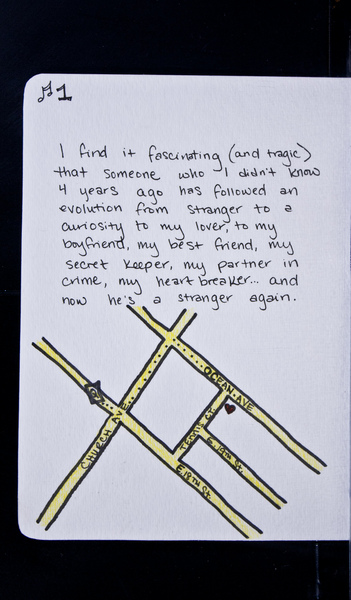 #1
I find it fascinating (and tragic)
that someone who I didn't know
4 years ago has followed an
evolution from stranger to a
curiosity to my lover, to my
boyfriend, my best friend, my
secret keeper, my partner in
crime, my heart breaker... and
now he's a stranger again.
OCEAN AVE
CHURCH
E 19TH ST.
E 18TH ST.